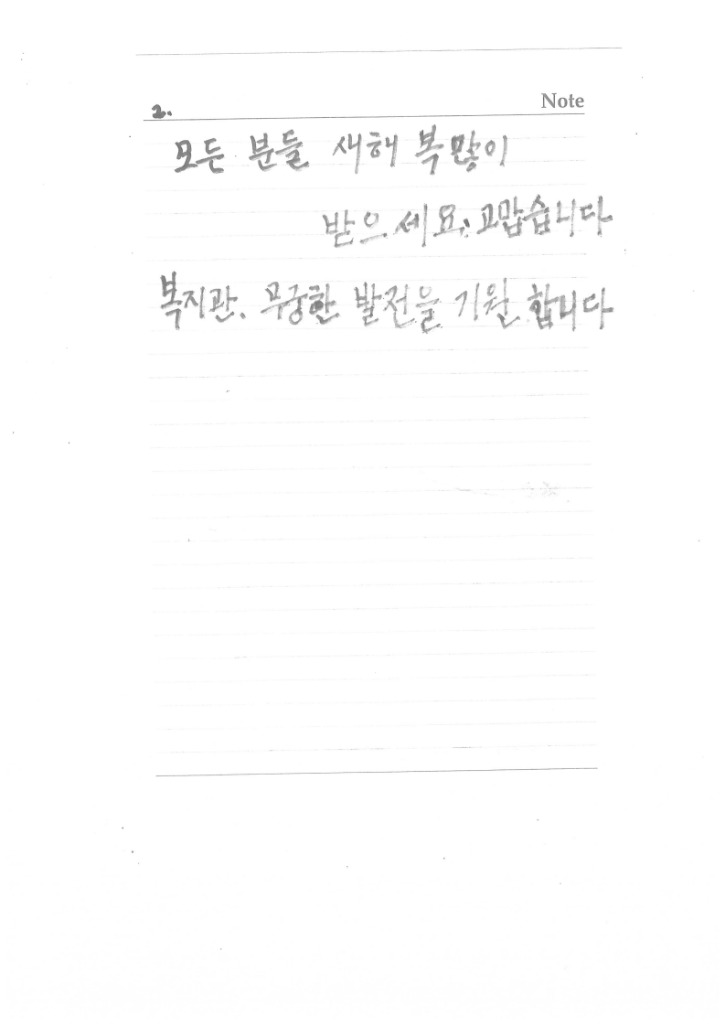 Note
2.
모든 분들 새해 복 많이
받으세요. 고맙습니다
복지관. 무궁한 발전을 기원 합니다